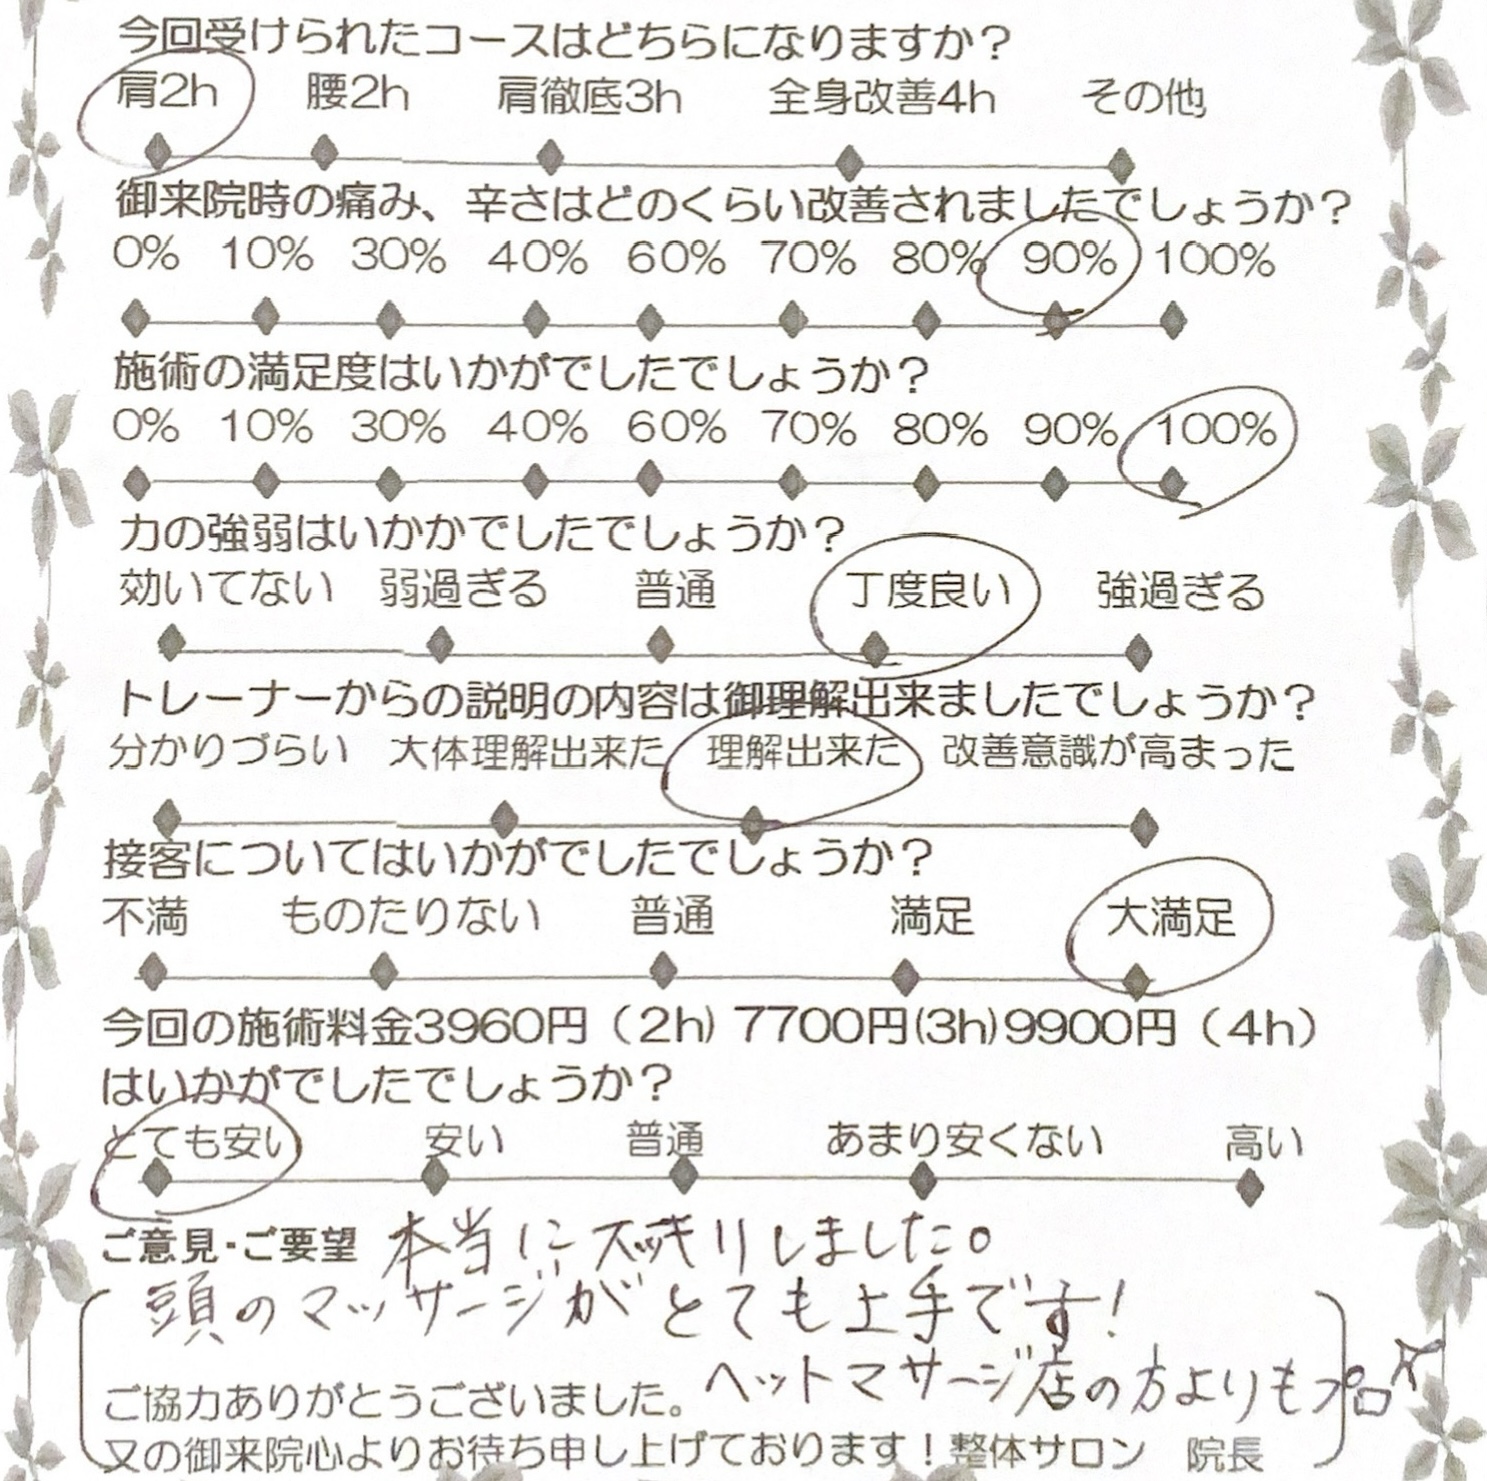 今回受けられたコースはどちらになりますか？
肩2h 腰2h 肩徹底3h 全身改善4h その他
御来院時の痛み、辛さはどのくらい改善されましたでしょうか？
0% 10% 30% 40% 60% 70% 80% 90% 100%
施術の満足度はいかがでしたでしょうか？
0% 10% 30% 40% 60% 70% 80% 90% 100%
力の強弱はいかかでしたでしょうか？
効いてない 弱過ぎる 普通 丁度良い 強過ぎる
トレーナーからの説明の内容は御理解出来ましたでしょうか？
分かりづらい 大体理解出来た 理解出来た 改善意識が高まった
接客についてはいかがでしたでしょうか？
不満 ものたりない 普通 満足 大満足
今回の施術料金3960円（2h) 7700円(3h)9900円（4h）
はいかがでしたでしょうか？
とても安い 安い 普通 あまり安くない 高い
ご意見・ご要望 本当にスッキリしました。
頭のマッサージがとても上手です!
ヘットマサージ店の方よりもプロ
ご協力ありがとうございました。
又の御来院心よりお待ち申し上げております！整体サロン 院長